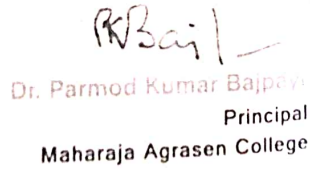 PKBajl
Dr. Parmod Kumar Bajpayi
Principal
Maharaja Agrasen College